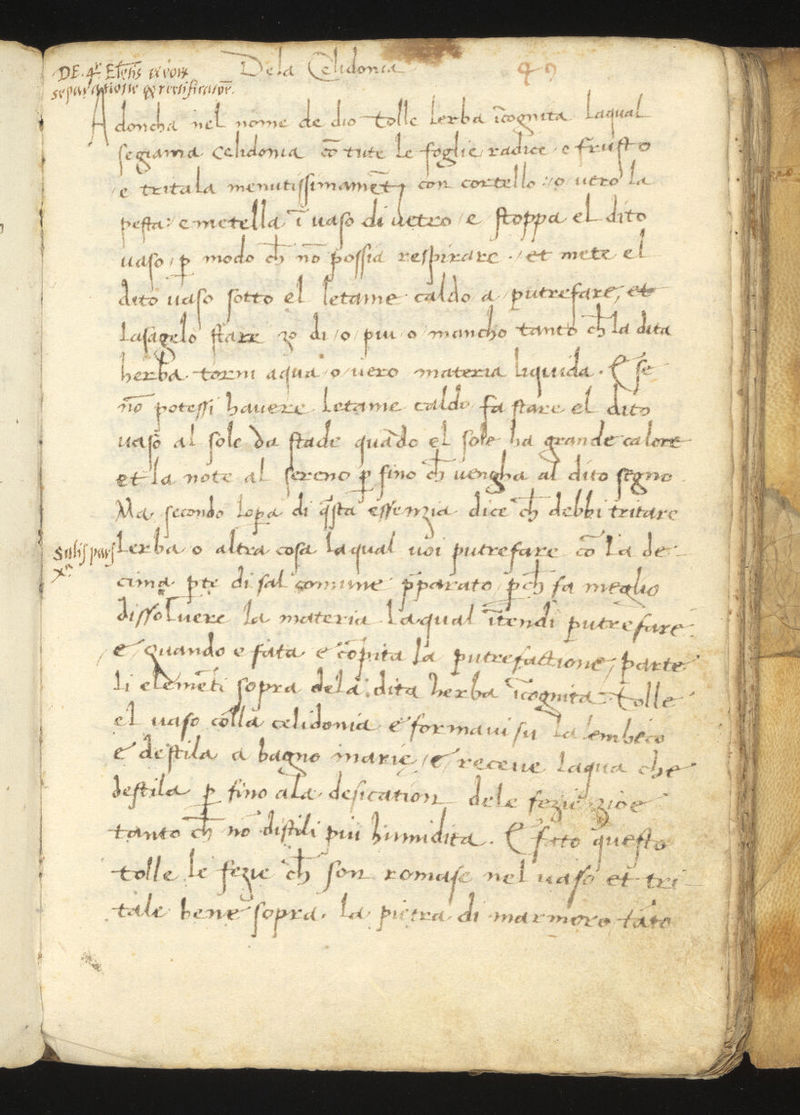 DE. 4r. Elẽtis et eorꝝ
separatione et rectificatõe.
Dela Celidonia
49
Adoncha nel nome de dio tolle lerba ĩcognita laqual
se giama celidonia cõ tute le foglie radice e frusto
e tritala menutissimamẽte con cortello :/o vero la
pesta: e metella ĩ vaso di vetro /e stoppa el dito
vaso /ꝑ modo cħ nõ possia respirare ./et mete el
dito vaso sotto el letame caldo a putrefare, et
lasagelo stare 30 di /o/ piu /o/ mancho tanto cħ la dita
herba torni aqua /o/ vero materia liquida. E se
nõ potessi havere letame caldo fa stare el dito
vaso al sole da stade quãdo el sole ha grande calore
et la note al sereno ꝑ fino cħ vengha al dito segno
Ma secondo lopa di q̃sta essenzia dice cħ debbi tritare
Salis pars
xᵃ
lerba o altra cosa laqual voi putrefare cõ la de-
cima pte di sal comune p̃parato ꝑcħ fa meglio
dissolvere la materia laqual ĩtendi putrefare.
e/ quando e fata e cõpita la putrefactione, parte
li elemẽti sopra dela dita herba ĩcognita. Tolle
el vaso colla celidonia e formavi su lalembico
e destila a bagno marie, /e/ receve laqua che
destila ꝑ fino ala desication dele fezie zioe
tanto cħ nõ distili piu humidita. E fato questo
tolle le fezie cħ son romase nel vaso et tri-
tale bene sopra la pietra di marmoro tãto